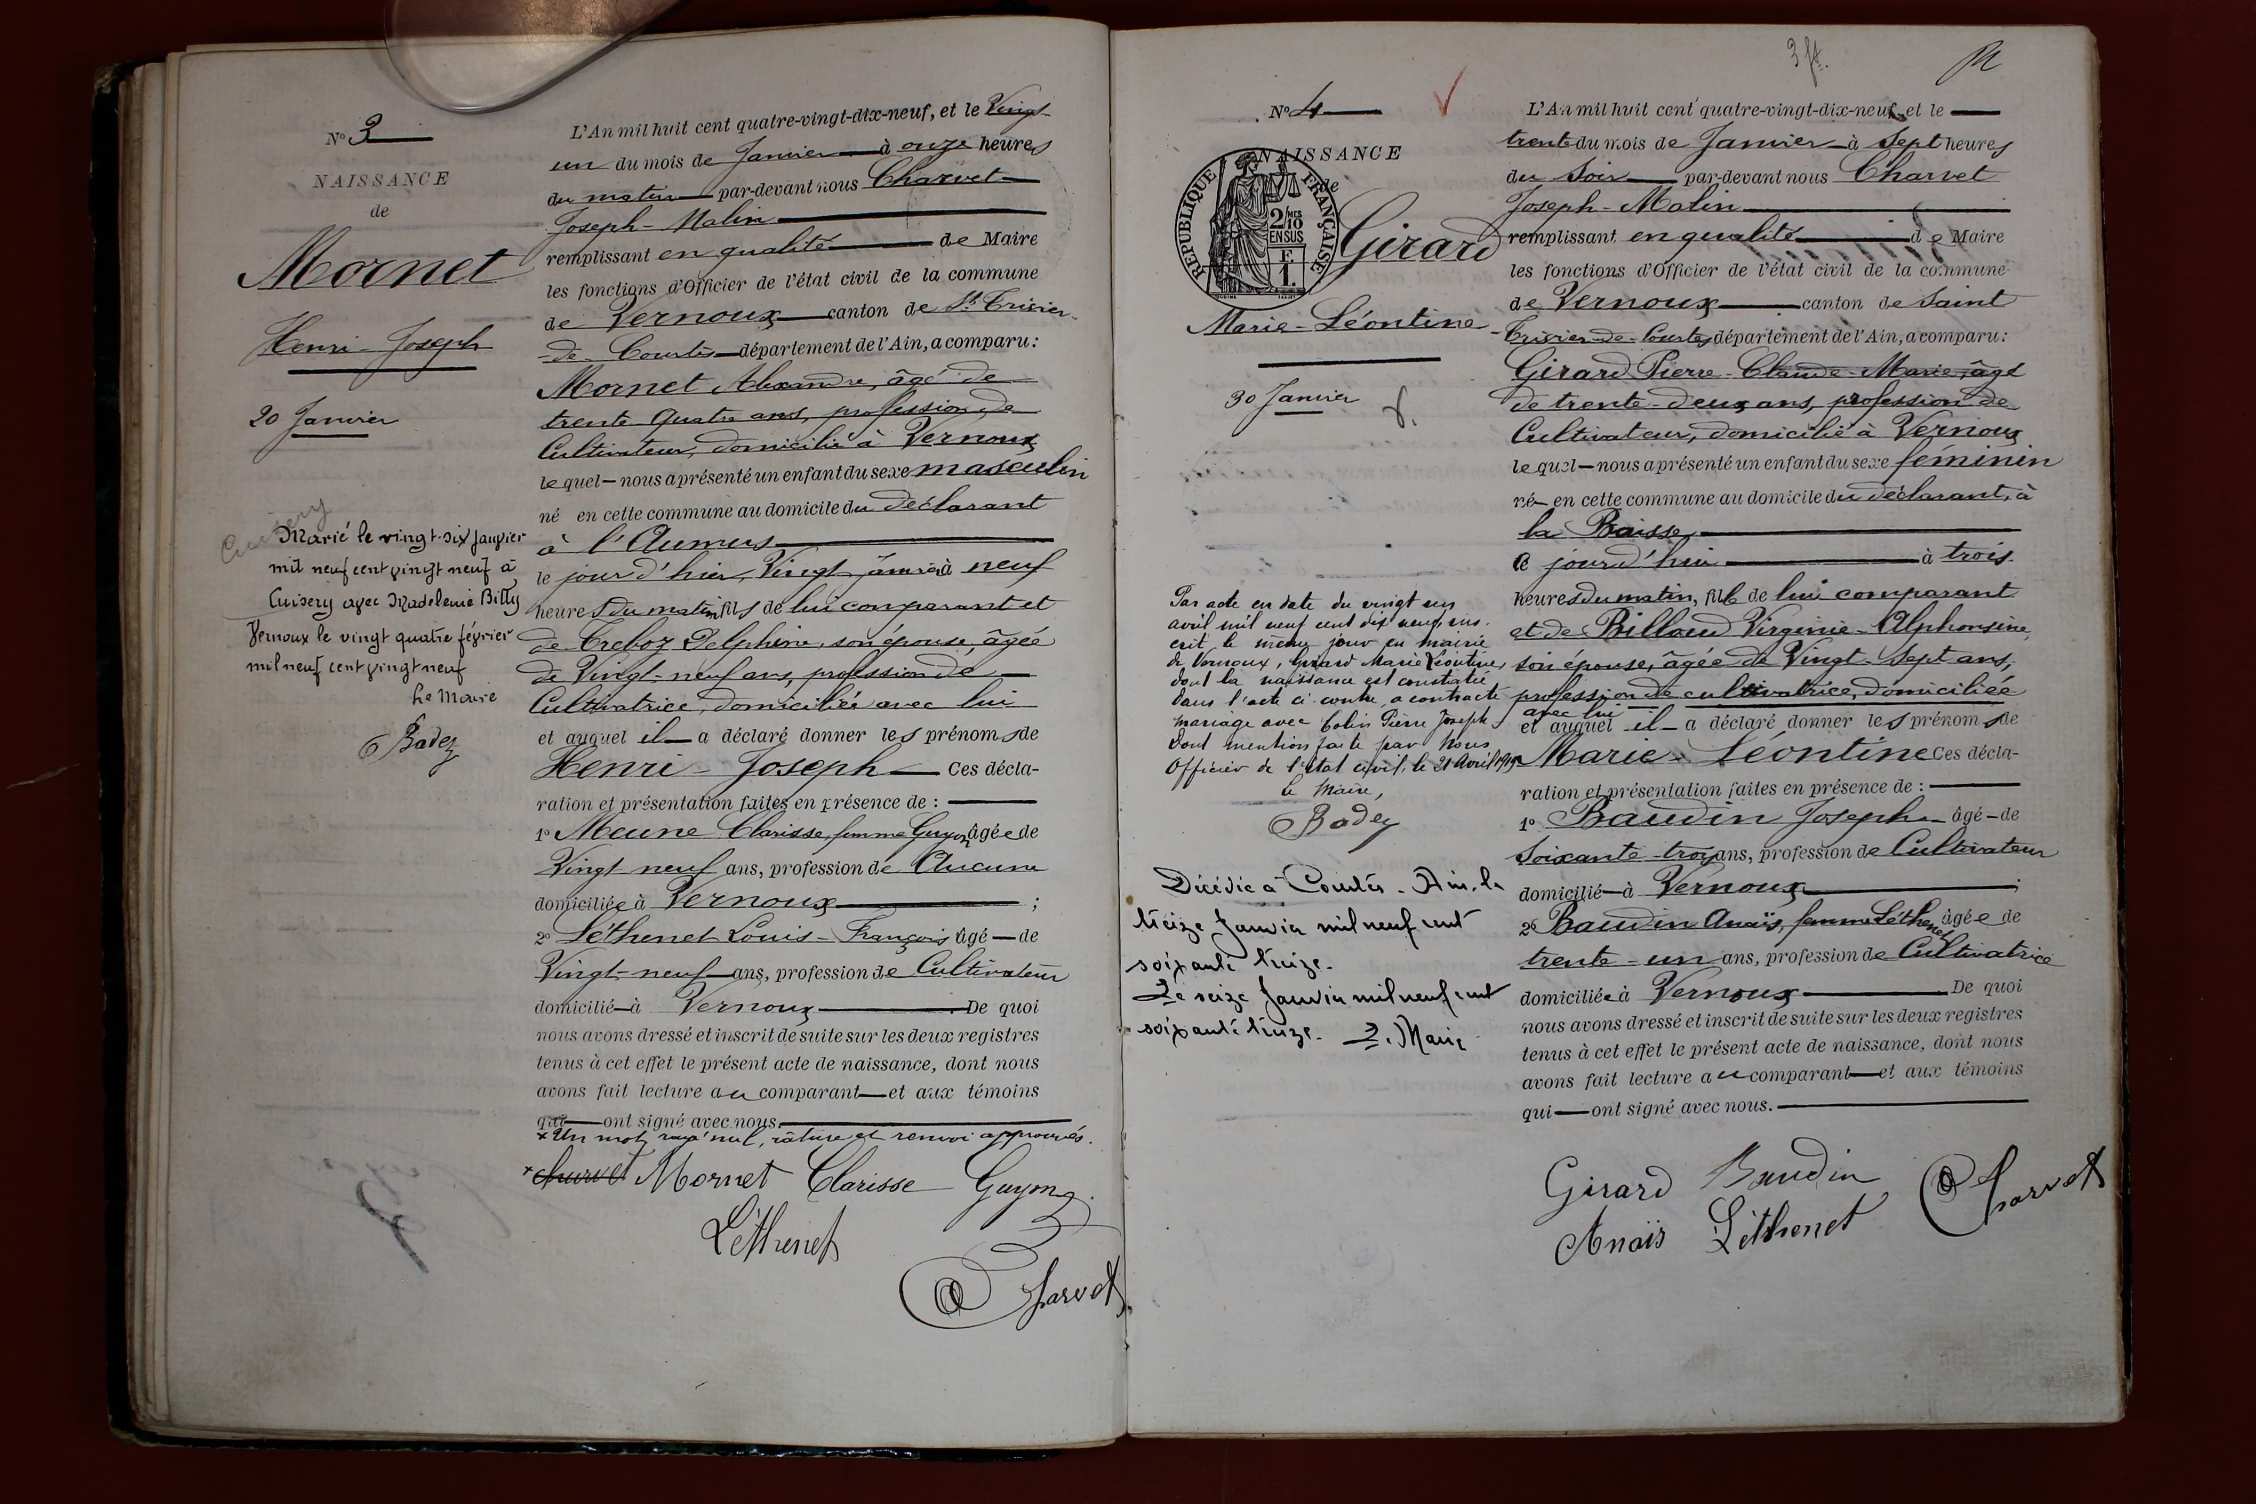 N° 3
NAISSANCE
de
Mornet
Henri - Joseph
20 Janvier
Cuisery
Marié le vingt-six janvier
mil neuf cent vingt neuf à
Cuisery avec Madeleine Billy
Vernoux le vingt quatre février
mil neuf cent vingt neuf
Le Maire
Badey
L'An mil huit cent quatre-vingt-dix-neuf, et le Vingt-
un du mois de Janvier à onze heures
du matin par-devant nous Charvet
Joseph - Malin
remplissant en qualité de Maire
les fonctions d'Officier de l'état civil de la commune
de Vernoux canton de St Trivier-
de-Courtes département de l'Ain, a comparu :
Mornet Alexandre, âgé de
trente quatre ans, profession de
Cultivateur, domicilié à Vernoux
lequel — nous a présenté un enfant du sexe masculin
né en cette commune au domicile du déclarant
à l'Aumus
le jour d'hier, Vingt janvier à neuf
heures du matin, fils de lui comparant et
de Treboz Delphine, son épouse, âgée
de Vingt-neuf ans, profession de
Cultivatrice, domiciliée avec lui
et auquel il a déclaré donner les prénoms de
Henri - Joseph Ces décla-
ration et présentation faites en présence de :
1° Meune Clarisse, femme Guyon, âgée de
Vingt neuf ans, profession de Aucune
domiciliée à Vernoux ;
2° Léthenet Louis - François âgé — de
Vingt-neuf ans, profession de Cultivateur
domicilié — à Vernoux De quoi
nous avons dressé et inscrit de suite sur les deux registres
tenus à cet effet le présent acte de naissance, dont nous
avons fait lecture au comparant — et aux témoins
qui — ont signé avec nous
x Un mot rayé nul, rature et renvoi approuvés.
x Charvet Mornet Clarisse Guyon
Léthenet
Charvet
3 ft.
N° 4
NAISSANCE
de
REPUBLIQUE FRANÇAISE
2/10MES
EN SUS
F.
1.
Girard
Marie - Léontine
30 Janvier
Par acte en date du vingt un
avril mil neuf cent dix neuf, ins-
crit le même jour en mairie
de Vernoux, Girard Marie Léontine,
dont la naissance est constatée
dans l'acte ci-contre, a contracté
mariage avec Colin Pierre Joseph
Dont mention faite par Nous
Officier de l'état civil, le 21 Avril 1919
Le Maire,
Badey
Décédée à Courtes - Ain, le
treize Janvier mil neuf cent
soixante treize.
Le seize Janvier mil neuf cent
soixante treize. Le Maire
L'An mil huit cent quatre-vingt-dix-neuf, et le
trente du mois de Janvier à Sept heures
du Soir par-devant nous Charvet
Joseph - Malin
remplissant en qualité de Maire
les fonctions d'Officier de l'état civil de la commune
de Vernoux canton de Saint
Trivier-de-Courtes, département de l'Ain, a comparu :
Girard Pierre - Claude - Marie, âgé
de trente-deux ans, profession de
Cultivateur, domicilié à Vernoux
lequel — nous a présenté un enfant du sexe féminin
né — en cette commune au domicile du déclarant, à
la Baisse,
ce jourd'hui à trois
heures du matin, fille de lui comparant
et de Billoud Virginie - Alphonsine,
son épouse, âgée de Vingt-Sept ans,
profession de cultivatrice, domiciliée
avec lui
et auquel il — a déclaré donner les prénoms de
Marie - Léontine Ces décla-
ration et présentation faites en présence de :
1° Baudin Joseph âgé — de
Soixante-trois ans, profession de Cultivateur
domicilié — à Vernoux ;
2° Baudin Anaïs, femme Léthenet âgée de
trente-un ans, profession de Cultivatrice
domiciliée à Vernoux De quoi
nous avons dressé et inscrit de suite sur les deux registres
tenus à cet effet le présent acte de naissance, dont nous
avons fait lecture au comparant — et aux témoins
qui — ont signé avec nous.
Girard Baudin Charvet
Anaïs Léthenet